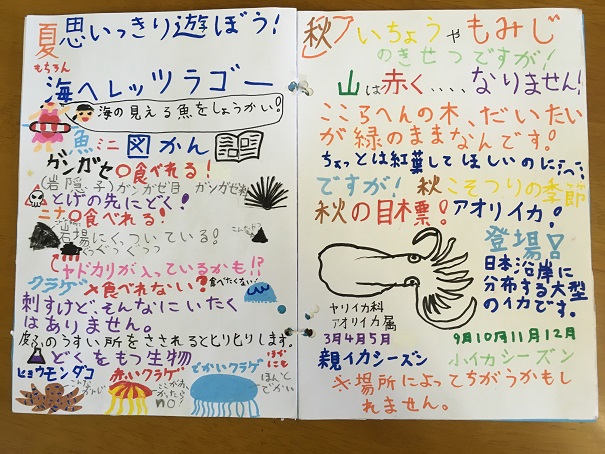 夏 思いっきり遊ぼう!
もちろん
海へレッツラゴー
海の見える魚をしょうかい!
魚ミニ図かん
ガンガゼ○食べれる!
ガンガゼ目 ガンガゼ科
とげの先にどく!
ニナ○食べれる!
岩場にくっついている!
こんなだ
ヤドカリが入っているかも!?
クラゲ×食べれない?食べたくない
刺すけど、そんなにいたく
はありません。
皮ふのうすい所をさされるとヒリヒリします。
どくをもつ生物
ほかにも
ヒョウモンダコ
こんなかんじ
赤いクラゲ
でかいクラゲ
ほんとでかい
秋 いちょうやもみじ
のきせつですが!
山は赤く....なりません!
こころへんの木、だいたい
が緑のままなんです!
ちょっとは紅葉してほしいのに
ですが!秋こそつりの季節
秋の目標!アオリイカ!
登場!
日本沿岸に
分布する大型
のイカです。
ヤリイカ科
アオリイカ属
3月4月5月
親イカシーズン
9月10月11月12月
小イカシーズン
※場所によってちがうかもし
れません。